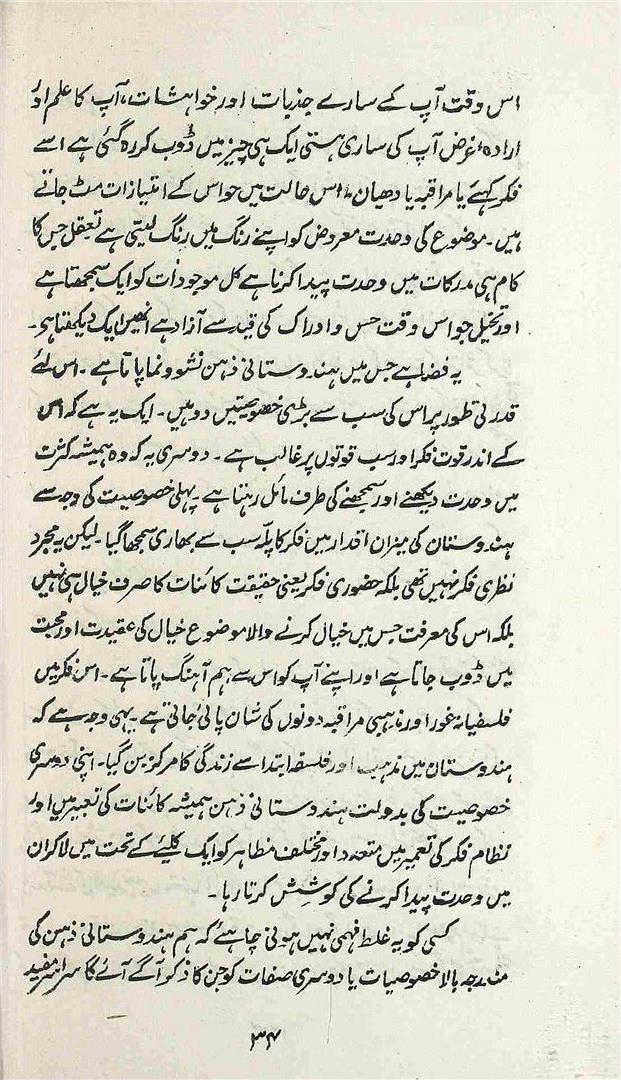 اس وقت آپ کے سارے جذبات اور خواہشات، آپ کا علم اور
ارادہ، غرض آپ کی ساری ہستی ایک ہی چیز میں ڈوب کر رہ گئی ہے اسے
فکر کہیئے یا مراقبہ یا دھیان۔ اس حالت میں حواس کے امتیازات مٹ جاتے
ہیں۔ موضوع کی وحدت معروض کو اپنے رنگ میں رنگ لیتی ہے تعقل جس کا
کام ہی مدرکات میں وحدت پیدا کرنا ہے کل موجودات کو ایک سمجھتا ہے
اور تخیل جو اس وقت حس و ادراک کی قید سے آزاد ہے انھیں ایک دیکھتا ہے۔
یہ فضا ہے جس میں ہندوستانی ذہن نشوونما پاتا ہے۔ اس لئے
قدرتی طور پر اس کی سب سے بڑی خصوصیتیں دو ہیں۔ ایک یہ ہے کہ اس
کے اندر قوت فکر اور سب قوتوں پر غالب ہے۔ دوسری یہ کہ وہ ہمیشہ کثرت
میں وحدت دیکھنے اور سمجھنے کی طرف مائل رہتا ہے۔ پہلی خصوصیت کی وجہ سے
ہندوستان کی میزان اقدار میں فکر کا پلہ سب سے بھاری سمجھا گیا۔ لیکن یہ مجرد
نظری فکر نہیں تھی بلکہ حضوری فکر یعنی حقیقت کائنات کا صرف خیال ہی نہیں
بلکہ اس کی معرفت جس میں خیال کرنے والا موضوع خیال کی عقیدت اور محبت
میں ڈوب جاتا ہے اور اپنے آپ کو اس سے ہم آہنگ پاتا ہے۔ اس فکر میں
فلسفیانہ غور اور مذہبی مراقبہ دونوں کی شان پائی جاتی ہے۔ یہی وجہ ہے کہ
ہندوستان میں مذہب اور فلسفہ ابتدا سے زندگی کا مرکز بن گیا۔ اپنی دوسری
خصوصیت کی بدولت ہندوستانی ذہن ہمیشہ کائنات کی تعبیر میں اور
نظام فکر کی تعمیر میں متعدد اور مختلف مظاہر کو ایک کلیئے کے تحت میں لا کر ان
میں وحدت پیدا کرنے کی کوشش کرتا رہا۔
کسی کو یہ غلط فہمی نہیں ہونی چاہئے کہ ہم ہندوستانی ذہن کی
مندرجہ بالا خصوصیات یا دوسری صفات کو جن کا ذکر آگے آئے گا سراسر مفید
۳۴